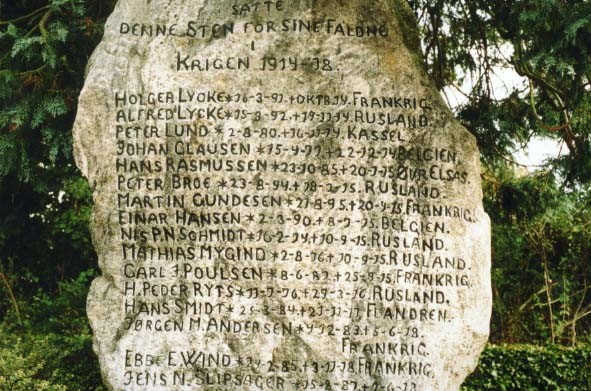 SATTE
DENNE STEN FOR SINE FALDNE
I
KRIGEN 1914-18.
HOLGER LYCKE*16-3-91.+OKTB.14. FRANKRIG.
ALFRED LYCKE*15-8-92.+19-11-14. RUSLAND.
PETER LUND*2-8-80.+16-11-14. KASSEL.
JOHAN CLAUSEN*15-4-77.+22-12-14. BELGIEN.
HANS RASMUSSEN*23-10-85.+20-1-15. ØVR ELSAS.
PETER BROE*23-8-94.+18-2-15. RUSLAND.
MARTIN GUNDESEN*21-8-95.+20-4-15. FRANKRIG.
EINAR HANSEN*2-3-90.+8-7-15. BELGIEN.
NIS P.N. SCHMIDT*16-2-74.+10-9-15. RUSLAND.
MATHIAS MYGIND*2-8-76.+10-9-15. RUSLAND.
CARL J. POULSEN*8-6-82.+25-9-15. FRANKRIG.
H. PEDER RYTS*11-7-76.+29-3-16. RUSLAND.
HANS SMIDT*25-3-84.+27-11-17. FLANDREN.
JØRGEN M. ANDERSEN*4-12-83.+5-6-18.
FRANKRIG.
EBBE E. WIND 85.+3-11-18. FRANKRIG.
JENS N. SLIPSAGER*15-8-87.